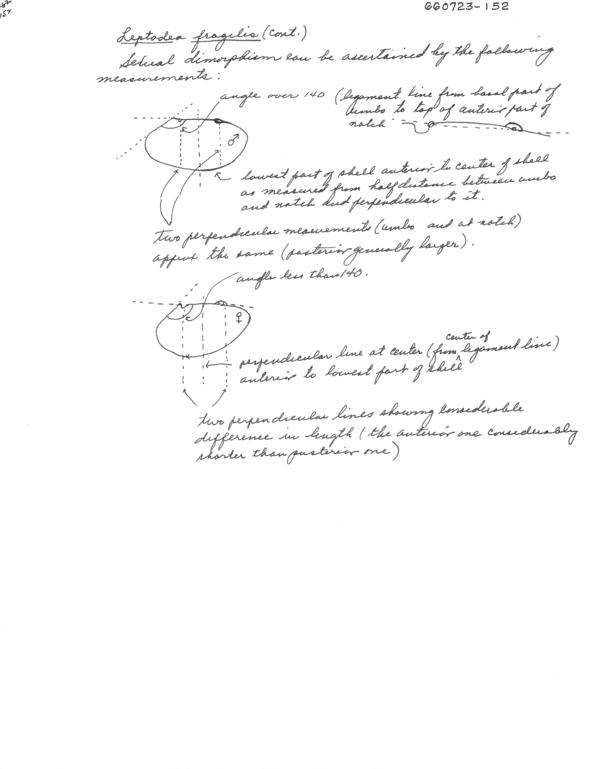 660723-152
Leptodea fragilis (cont.)
Sexual dimorphism can be ascertained by the following
measurements:
angle over 140 (ligament line from basal part of
umbo to top of anterior part of
notch
♂
lowest part of shell anterior to center of shell
as measured from half distance between umbo
and notch and perpendicular to it.
two perpendicular measurements (umbo and at notch)
approx the same (posterior generally larger).
angle less than 140.
♀
center of
perpendicular line at center (from ^ ligament line)
anterior to lowest part of shell
two perpendicular lines showing considerable
difference in length (the anterior one considerably
shorter than posterior one)